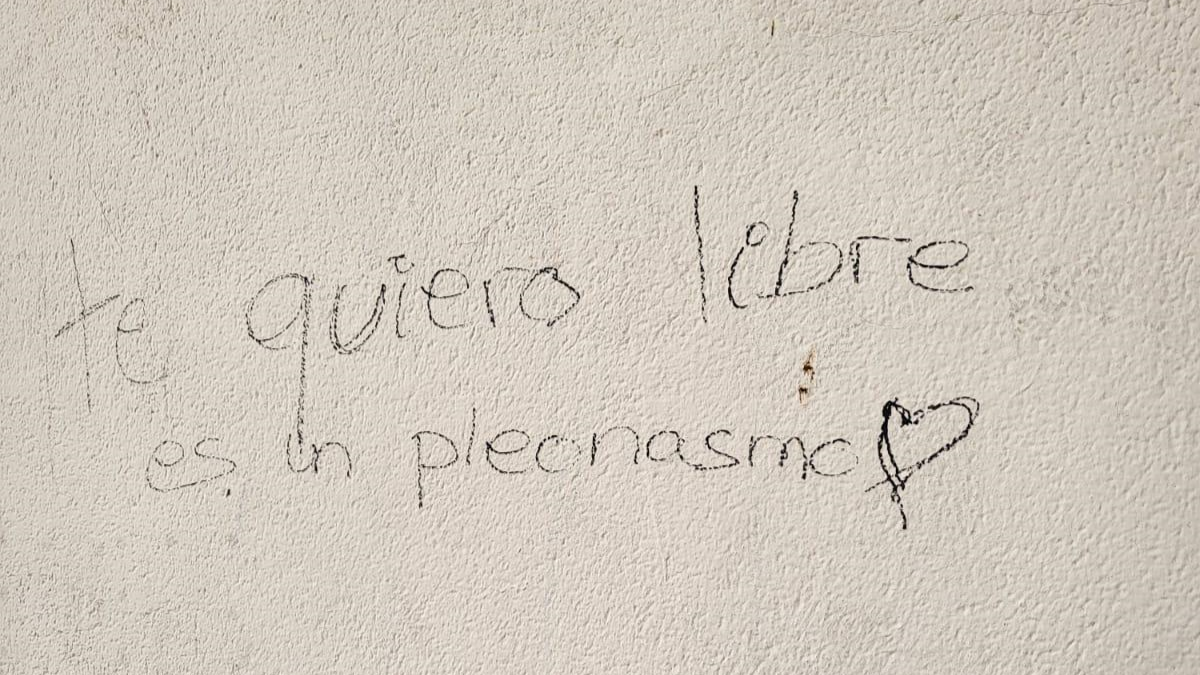 te quiero libre
es un pleonasmo